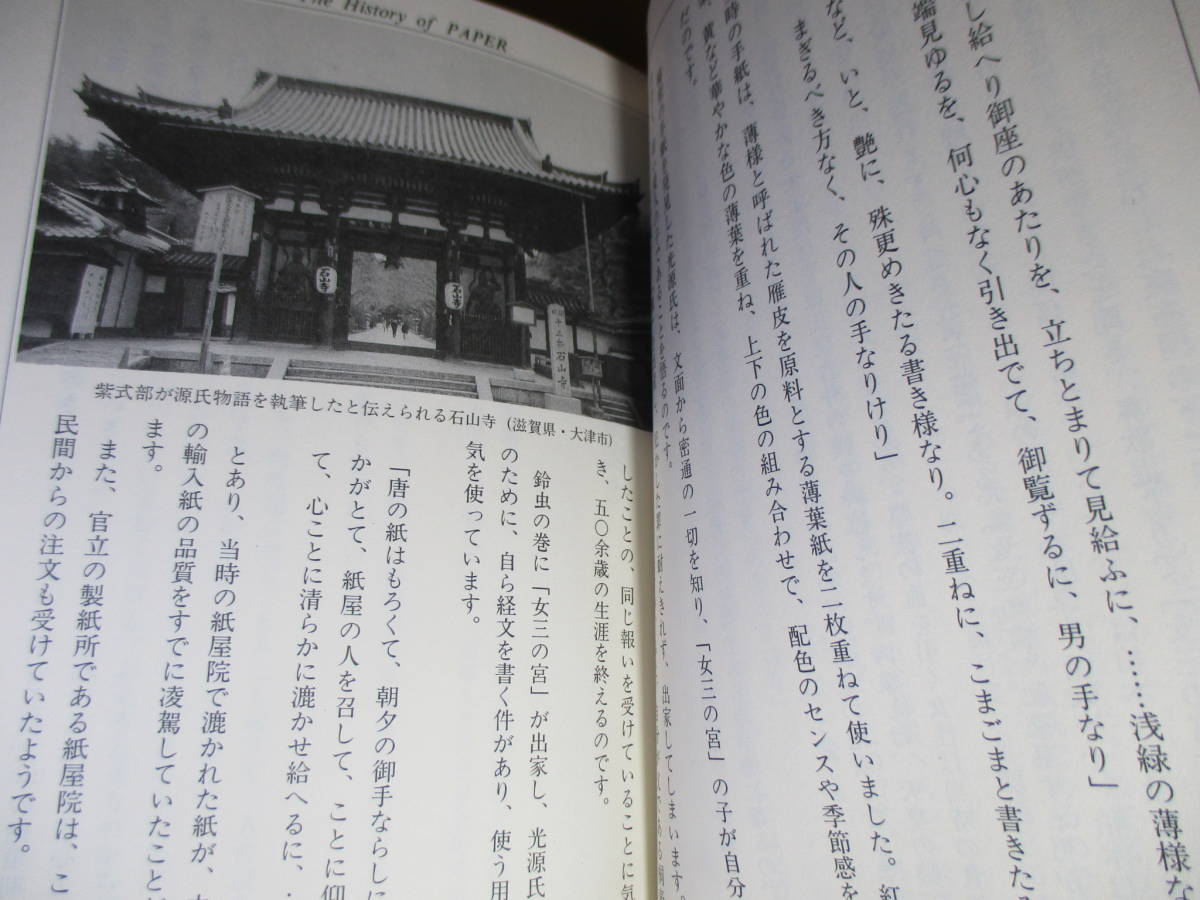 し給へり御座のあたりを、立ちとまりて見給ふに、……浅緑の薄様な
端見ゆるを、何心もなく引き出でて、御覧ずるに、男の手なり」
など、いと、艶に、殊更めきたる書き様なり。二重ねに、こまごまと書きた
まぎるべき方なく、その人の手なりけり」
時の手紙は、薄様と呼ばれた雁皮を原料とする薄葉紙を二枚重ねて使いました。紅
黄など華やかな色の薄葉を重ね、上下の色の組み合わせで、配色のセンスや季節感を
だのです。
した光源氏は、文面から密通の一切を知り、「女三の宮」の子が自分
であることを悟るのです。
罪に耐えきれず、出家してしまいます。
The History of PAPER
石山寺
石山寺
石山寺
紫式部が源氏物語を執筆したと伝えられる石山寺(滋賀県・大津市)
したことの、同じ報いを受けていることに気
き、五〇余歳の生涯を終えるのです。
鈴虫の巻に「女三の宮」が出家し、光源氏
のために、自ら経文を書く件があり、使う用
気を使っています。
「唐の紙はもろくて、朝夕の御手ならしに
かがとて、紙屋の人を召して、ことに仰
て、心ことに清らかに漉かせ給へるに、
とあり、当時の紙屋院で漉かれた紙が、
の輸入紙の品質をすでに凌駕していたこと
ます。
また、官立の製紙所である紙屋院は、こ
民間からの注文も受けていたようです。